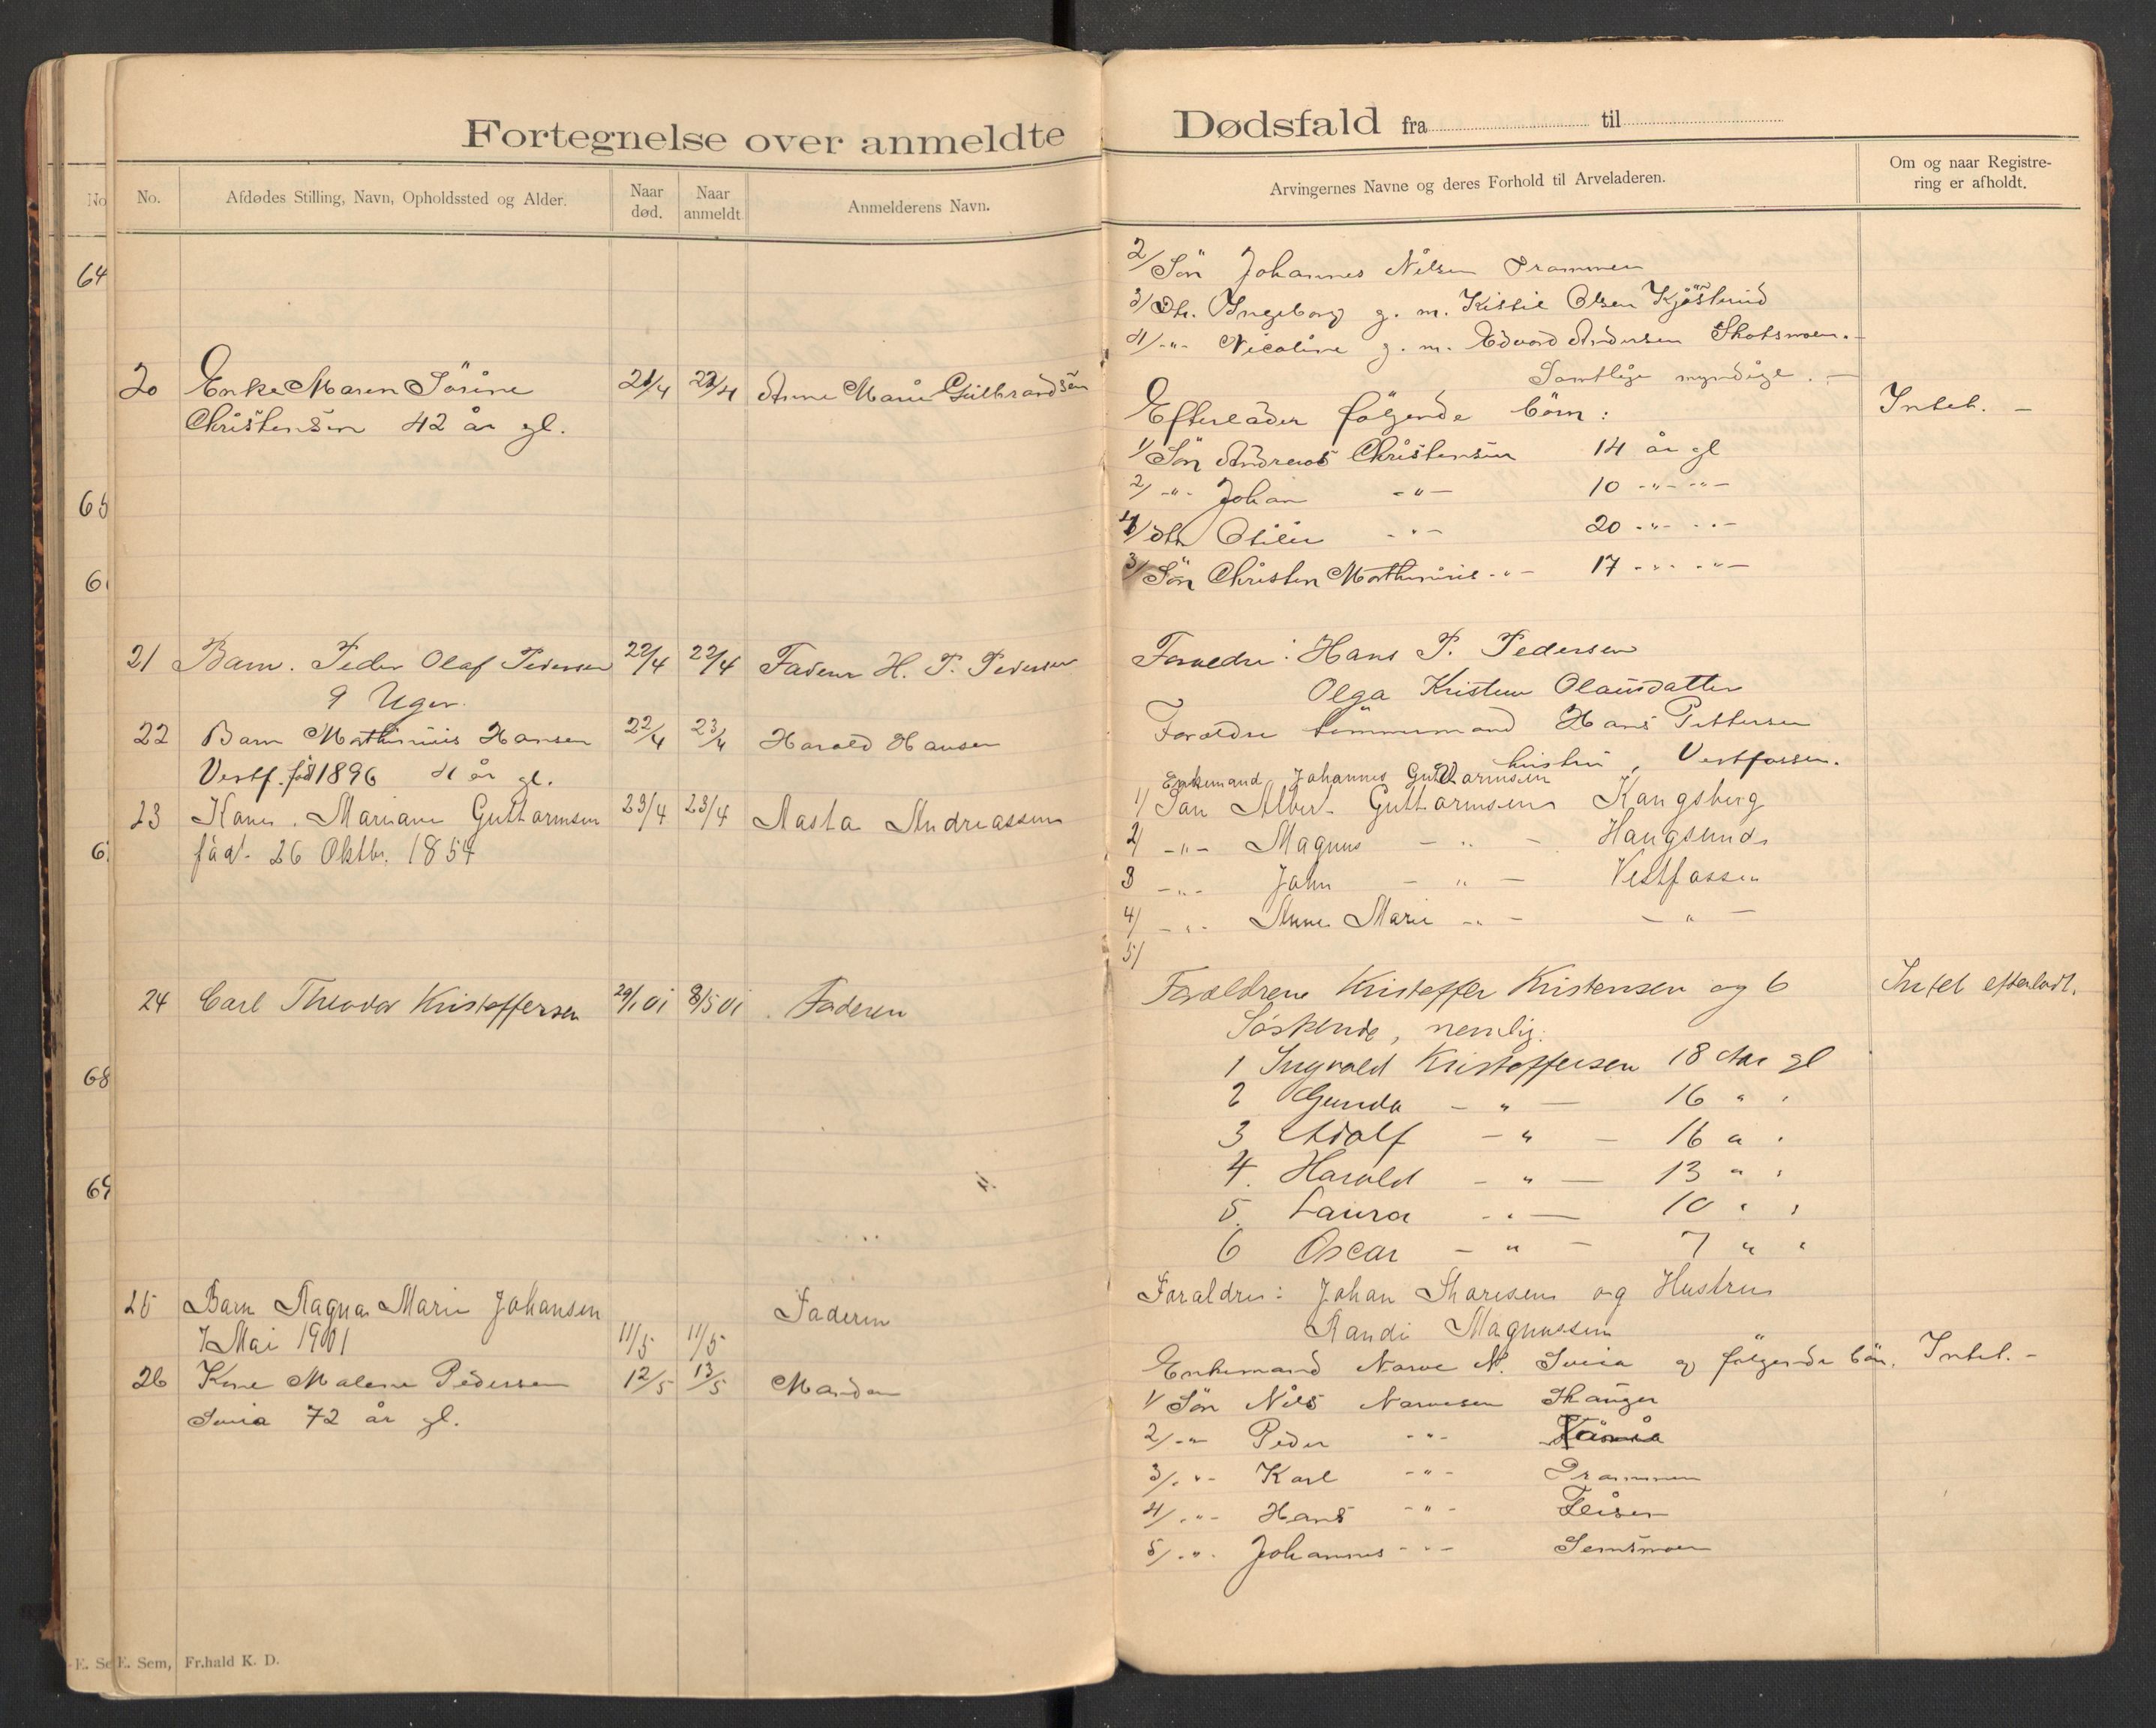 Fortegnelse over anmeldte Dødsfald fra til
No. Afdødes Stilling, Navn, Opholdssted og Alder. Naar død. Naar anmeldt Anmelderens Navn.
Arvingernes Navne og deres Forhold til Arveladeren. Om og naar Registrering er afholdt.
No
64
65
6
6
68
69
20 Enke Maren Sörine 21/4 23/4 Anne Marie Gulbrandsen
Christensen 42 år gl.
21 Barn. Peder Olaf Pedersen 22/4 22/4 Faderen H. P. Pedersen
9 Uger.
22 Barn Mathinius Hansen 22/4 23/4 Harald Hansen
Vestf. föd 1896 4 år gl.
23 Kone. Mariane Guttormsen 23/4 23/4 Aasta Andreassen
föd. 26 Oktbr. 1854
24 Carl Theodor Kristoffersen 29/1 01 8/5 01 Faderen
25 Barn Ragna Marie Johansen Faderen
7 Mai 1901 11/5 11/5
26 Kone Malene Pedersen 12/5 13/5 Manden
72 år gl.
E. Sem, Fr.hald K. D.
2/ Sön Johannes Nilsen Drammen
3/ Dtr. Ingeborg g. m. Kittil Olsen
4/ -"- Nicoline g. m. Edvard Andersen Skotsmoen. -
Samtlige myndige. -
Efterlader følgende börn: Intet. -
1/ Sön Andreas Christensen 14 år gl
2/ -"- Johan -"- 10 -"- -"-
4/ dtr Otilie -"- 20 -"- -"-
3/ Sön Christen Mathinius -"- 17 -"- -"-
Foreldre: Hans P. Pedersen
Olga Kristine Olausdatter
Foreldre tömmermand Hans Pettersen
hustru, Vestfossen.
Enkemand Johannes Guttormsen
1/ Sön Albert Guttormsen Kongsberg
2/ -"- Magnus - " - Haugsund
3 -"- John - " - Vestfossen
4/ -"- Anne Marie -"- - " -
5/
Forældrene Kristoffer Kristensen og 6 Intet efterladt.
Söskende, nemlig:
1 Ingvald Kristoffersen 18 Aar gl
2 Gunda - " - 16 " "
3 Adolf - " - 16 " "
4. Harald - " - 13 " "
5. Laura - " - 10 " "
6 Oscar - " - 7 " "
Foraldre: Johan Thoresen og Hustru
Randi Magnussen
Enkemand Narve N. og følgende bön. Intet. -
1/ Sön Nils Narvesen
2/ -"- Peder -"-
3/ -"- Karl -"- Drammen
4/ -"- Hans -"-
5/ -"- Johannes -"- Semsmoen